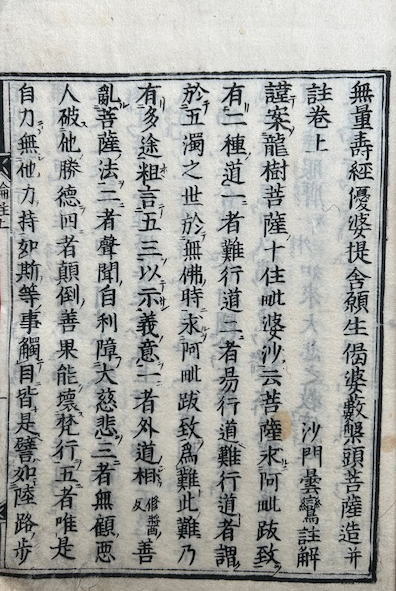 無量壽經優婆提舍願生偈婆藪槃頭菩薩造并
註卷上
沙門曇鸞註解
謹案龍樹菩薩十住毗婆沙云菩薩求阿毗跋致
有二種道一者難行道二者易行道難行道者謂
於五濁之世於無佛時求阿毗跋致爲難此難乃
有多途粗言五三以示義意一者外道相修醬反善
亂菩薩法二者聲聞自利障大慈悲三者無顧惡
人破他勝德四者顛倒善果能壞梵行五者唯是
自力無他力持如斯等事觸目皆是譬如陸路步